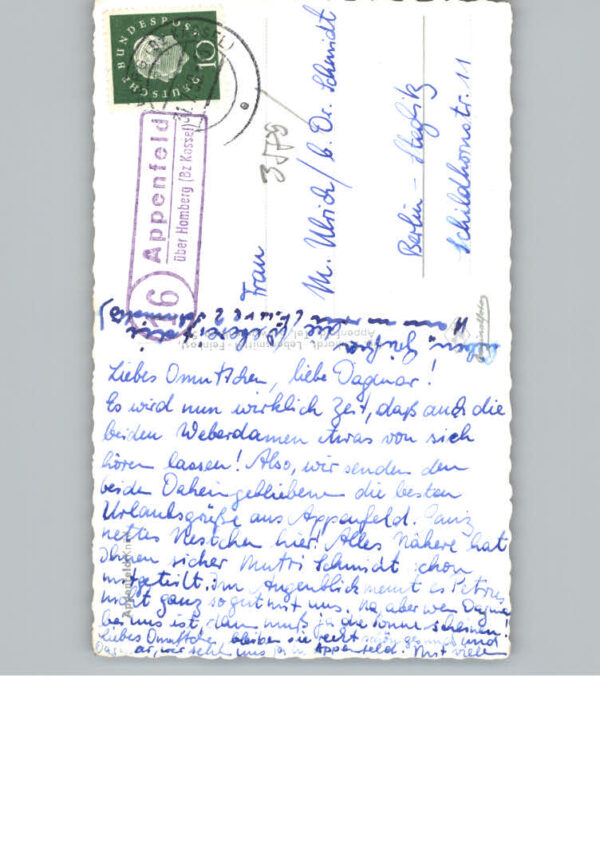 DEUTSCHE BUNDESPOST
10
16
Appenfeld
über Homberg (Bz Kassel)
3578
Frau
M. Ulrich / b. Dr. Schmidt
Berlin - Steglitz
Schildhornstr. 11
Lebensmittel - Feinkost
Liebes Omutschen, liebe Dagmar!
Es wird nun wirklich Zeit, daß auch die
beiden Weberdamen etwas von sich
hören lassen! Also, wir senden den
beiden Daheimgebliebenen die besten
Urlaubsgrüße aus Appenfeld. Ganz
nettes Nestchen hier! Alles Nähere hat
Ihnen sicher Mutti Schmidt schon
mitgeteilt. Im Augenblick meint es Petrus
nicht ganz so gut mit uns. Na, aber wenn Dagmar
bei uns ist, dann muß ja die Sonne scheinen!
Liebes Omuttchen bleiben Sie recht gesund und
Dagmar, wir sehn uns ja in Appenfeld. Mit vielen
lieben Grüßen
die